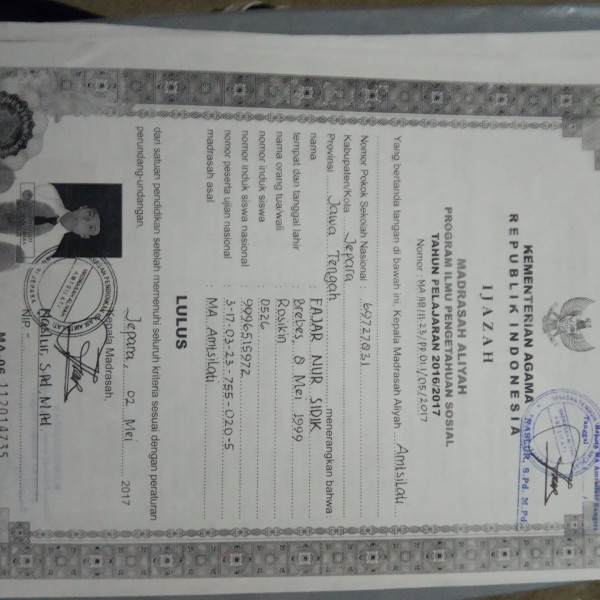 KEMENTERIAN AGAMA
REPUBLIK INDONESIA
IJAZAH
MADRASAH ALIYAH
PROGRAM ILMU PENGETAHUAN SOSIAL
TAHUN PELAJARAN 2016/2017
Yang bertanda tangan di bawah ini, Kepala Madrasah Aliyah ... Amtsilati
Nomor Pokok Sekolah Nasional : 69727831
Kabupaten/Kota Jepara
Provinsi Jawa Tengah menerangkan bahwa
nama : FAJAR NUR SIDIK
tempat dan tanggal lahir : Brebes, 8 Mei 1999
nama orang tua/wali : Rosikin
nomor induk siswa : 0526
nomor induk siswa nasional : 9996515972
nomor peserta ujian nasional : 3-17-03-23-755-020-5
madrasah asal : MA Amtsilati
LULUS
dari satuan pendidikan setelah memenuhi seluruh kriteria sesuai dengan peraturan
perundang-undangan.
Jepara, 02 Mei 2017
Kepala Madrasah,
Naslur, S.Pd, M.Pd
NIP.
MA-06 112014735
NASLUR, S.Pd, M.Pd